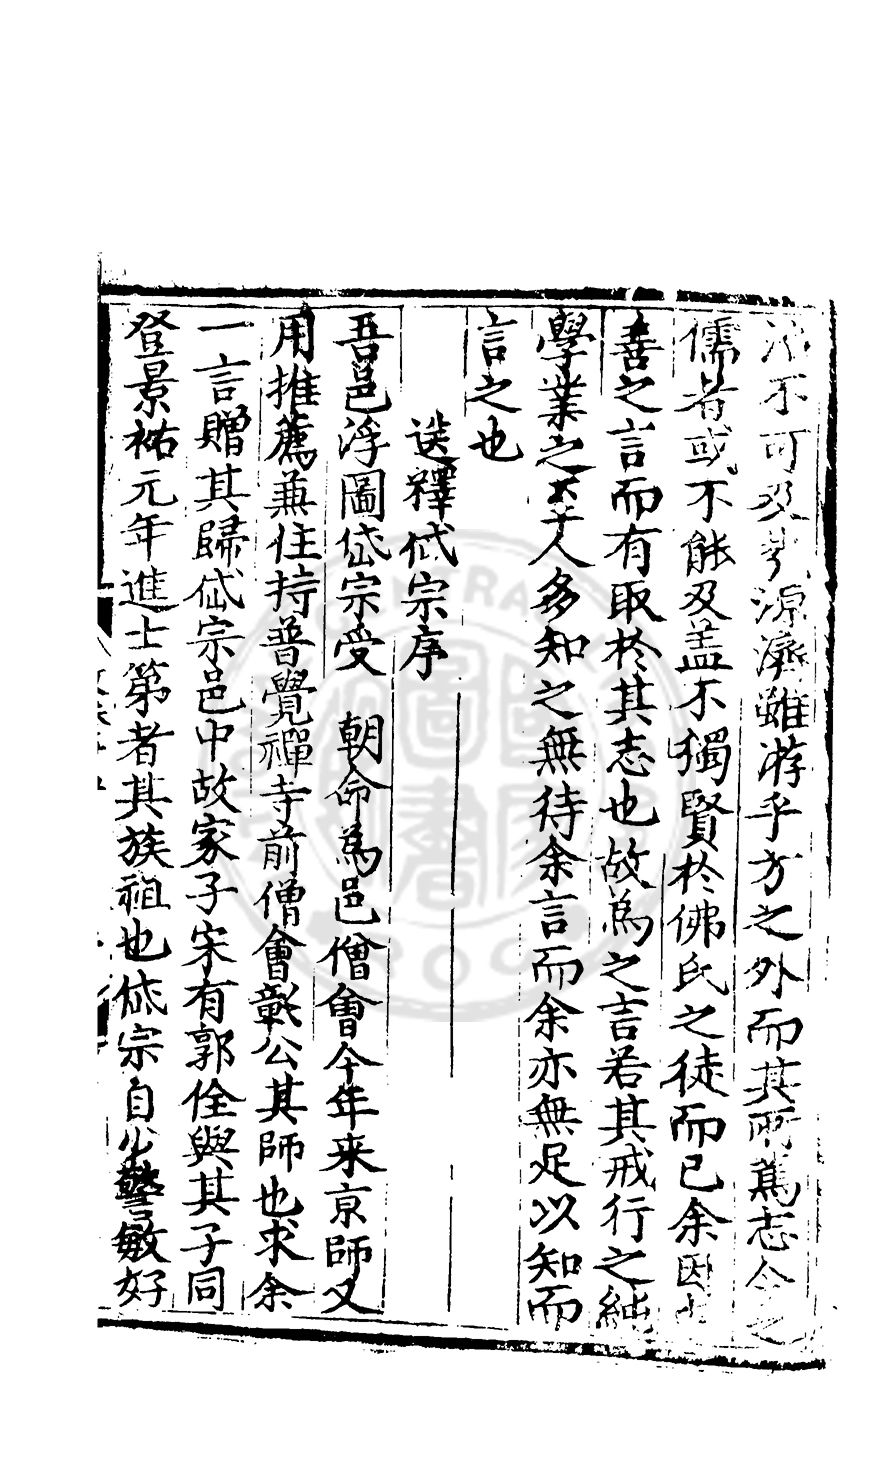 不可及哉源濟雖游乎方之外而其所篤志今之
儒者或不能及盖不獨賢於佛氏之徒而已余因
善之言而有取於其志也故為之言若其戒行之純
學業之人多知之無待余言而余亦無足以知而
言之也
送釋岱宗序
吾邑浮圖岱宗受 朝命為邑僧會今年来京師又
用推薦兼住持普覺禪寺前僧會彰公其師也求余
一言贈其歸岱宗邑中故家子宋有郭佺與其子同
登景祐元年進士第者其族祖也岱宗自少警敏好